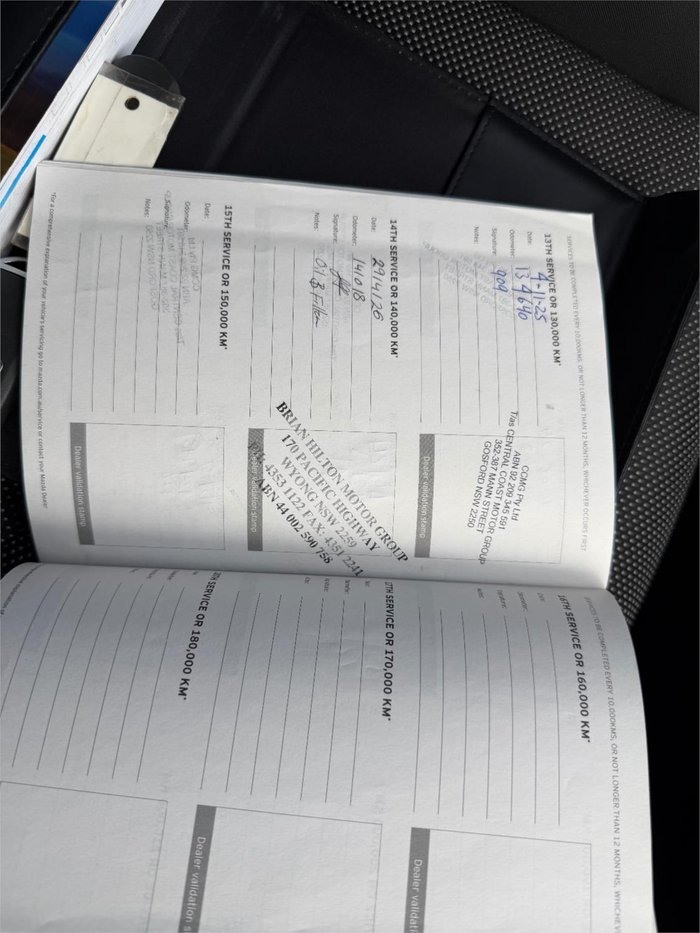 SERVICES TO BE COMPLETED EVERY 10,000KMS, OR NOT LONGER THAN 12 MONTHS, WHICHEVER OCCURS FIRST
13TH SERVICE OR 130,000 KM*
Date: 4-11-25
Odometer: 134640
Signature: 909
Notes:
CCMG Pty Ltd
ABN 92 209 345 591
T/as CENTRAL COAST MOTOR GROUP
352-387 MANN STREET
GOSFORD NSW 2250
Dealer validation stamp
14TH SERVICE OR 140,000 KM*
Date: 29/4/26
Odometer: 141018
Signature:
Notes: Oil & Filter
BRIAN HILTON MOTOR GROUP
170 PACIFIC HIGHWAY
WYONG NSW 2259
4353 1122 FAX: 4351 2241
ABN 44 002 590 758
Dealer validation stamp
15TH SERVICE OR 150,000 KM*
Date:
Odometer:
Signature:
Notes:
Dealer validation stamp
*For a comprehensive explanation of your vehicle's servicing go to mazda.com.au/service or contact your Mazda Dealer.
SERVICES TO BE COMPLETED EVERY 10,000KMS, OR NOT LONGER THAN 12 MONTHS, WHICHEV
16TH SERVICE OR 160,000 KM*
Dealer validation
17TH SERVICE OR 170,000 KM*
Dealer validation s
TH SERVICE OR 180,000 KM*